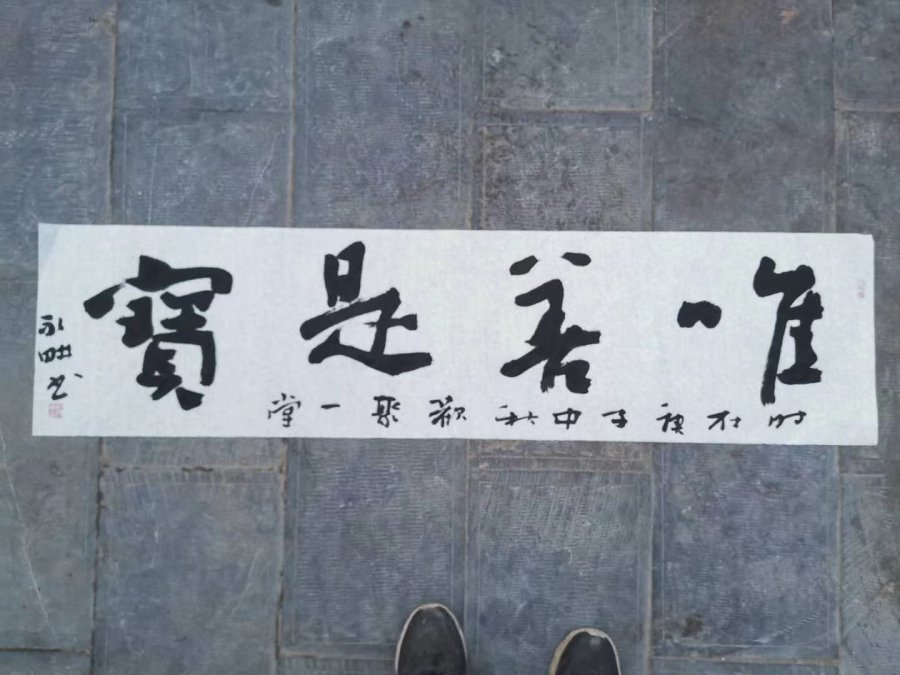 唯善是寶
时在庚子中秋欢聚一堂
永畊书